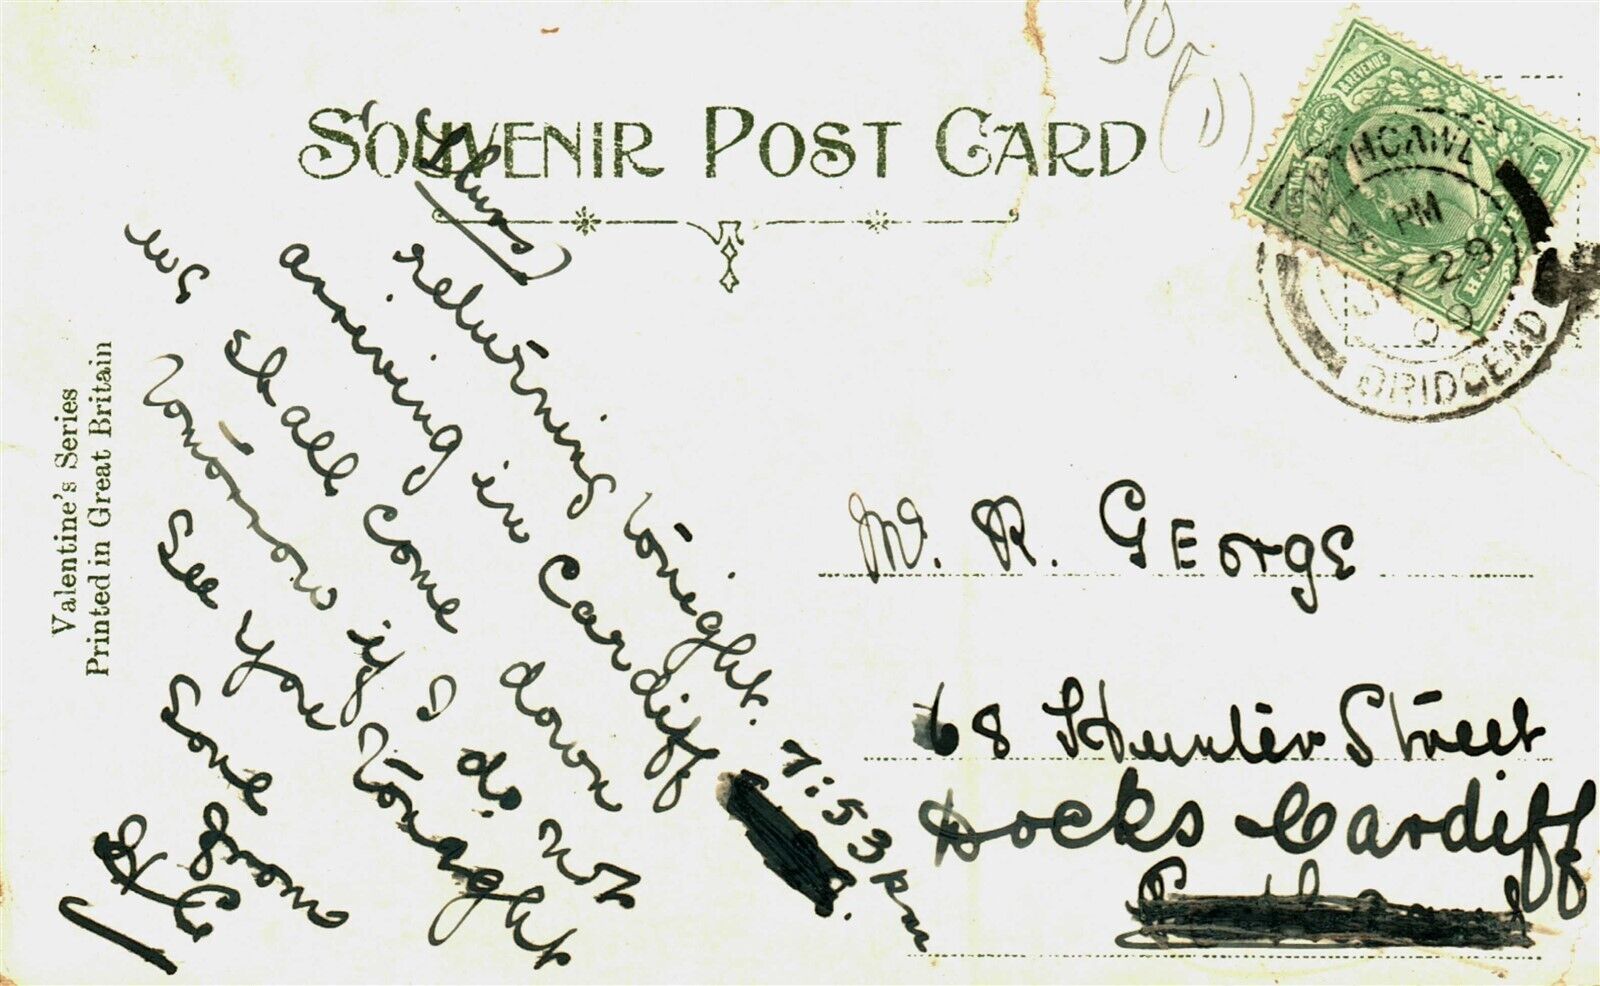 SOUVENIR POST CARD
Valentine's Series
Printed in Great Britain
Thurs
returning tonight.
arriving in Cardiff 7:53 pm
we shall come down
tomorrow if I do not
see you tonight
Love from
Mr. R. GEorgE
68 Hunter Street
Docks Cardiff
30p
(D)
& REVENUE
PM
29
09
BRIDGEND